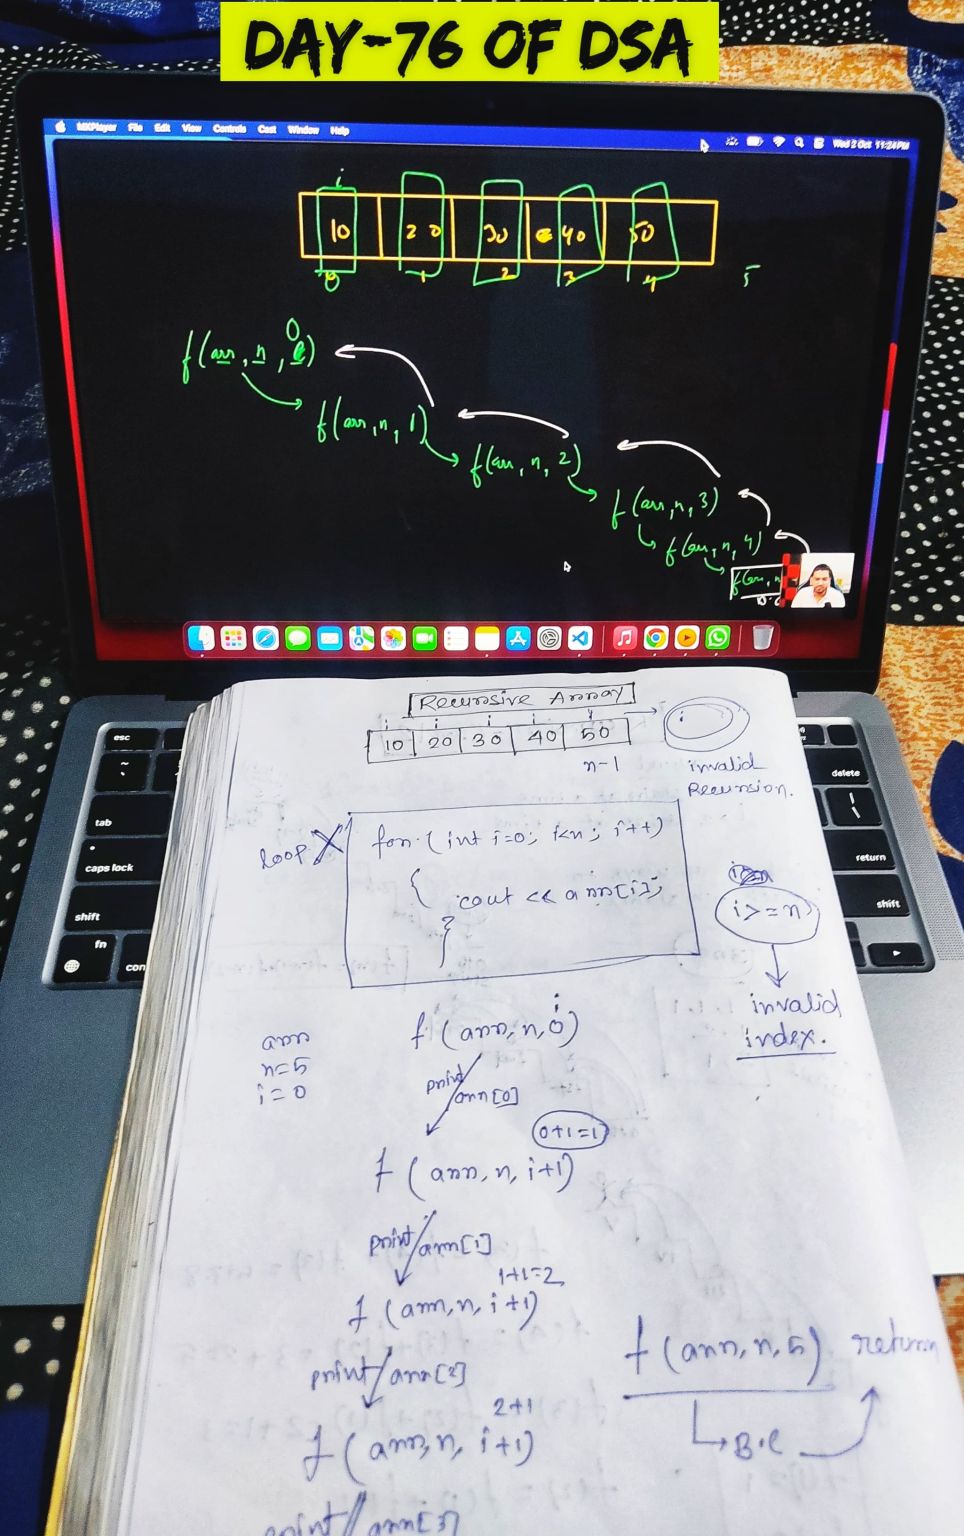 DAY-76 OF DSA
MXPlayer File Edit View Controls Cast Window Help
Wed 2 Oct 11:24 PM
i
10 20 30 40 50
0 1 2 3 4 5
0
f(arr, n, )
f(arr, n, 1)
f(arr, n, 2)
f(arr, n, 3)
f(arr, n, 4)
f(arr, n
esc
tab
caps lock
shift
fn
con
delete
return
shift
Recursive Array
i i i i i
10 20 30 40 50
n-1
invalid
Recursion.
loop X
for (int i=0; i<n; i++)
{
cout << arr[i];
}
i>=n
invalid
index.
arr
n=5
i=0
i
f(arr, n, 0)
print arr[0]
0+1=1
f(arr, n, i+1)
print arr[1]
1+1=2
f(arr, n, i+1)
print arr[2]
2+1
f(arr, n, i+1)
print arr[3]
f(arr, n, 5) return
B.C